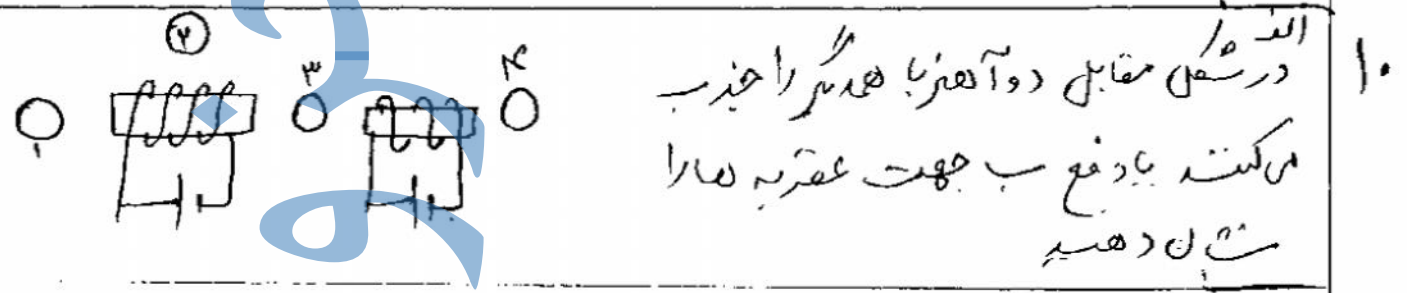 ۱۰
الف
در شکل مقابل دو آهنربا همدیگر را جذب
می‌کنند یا دفع ب جهت عقربه ها را
نشان دهید
۱
۲
۳
۴